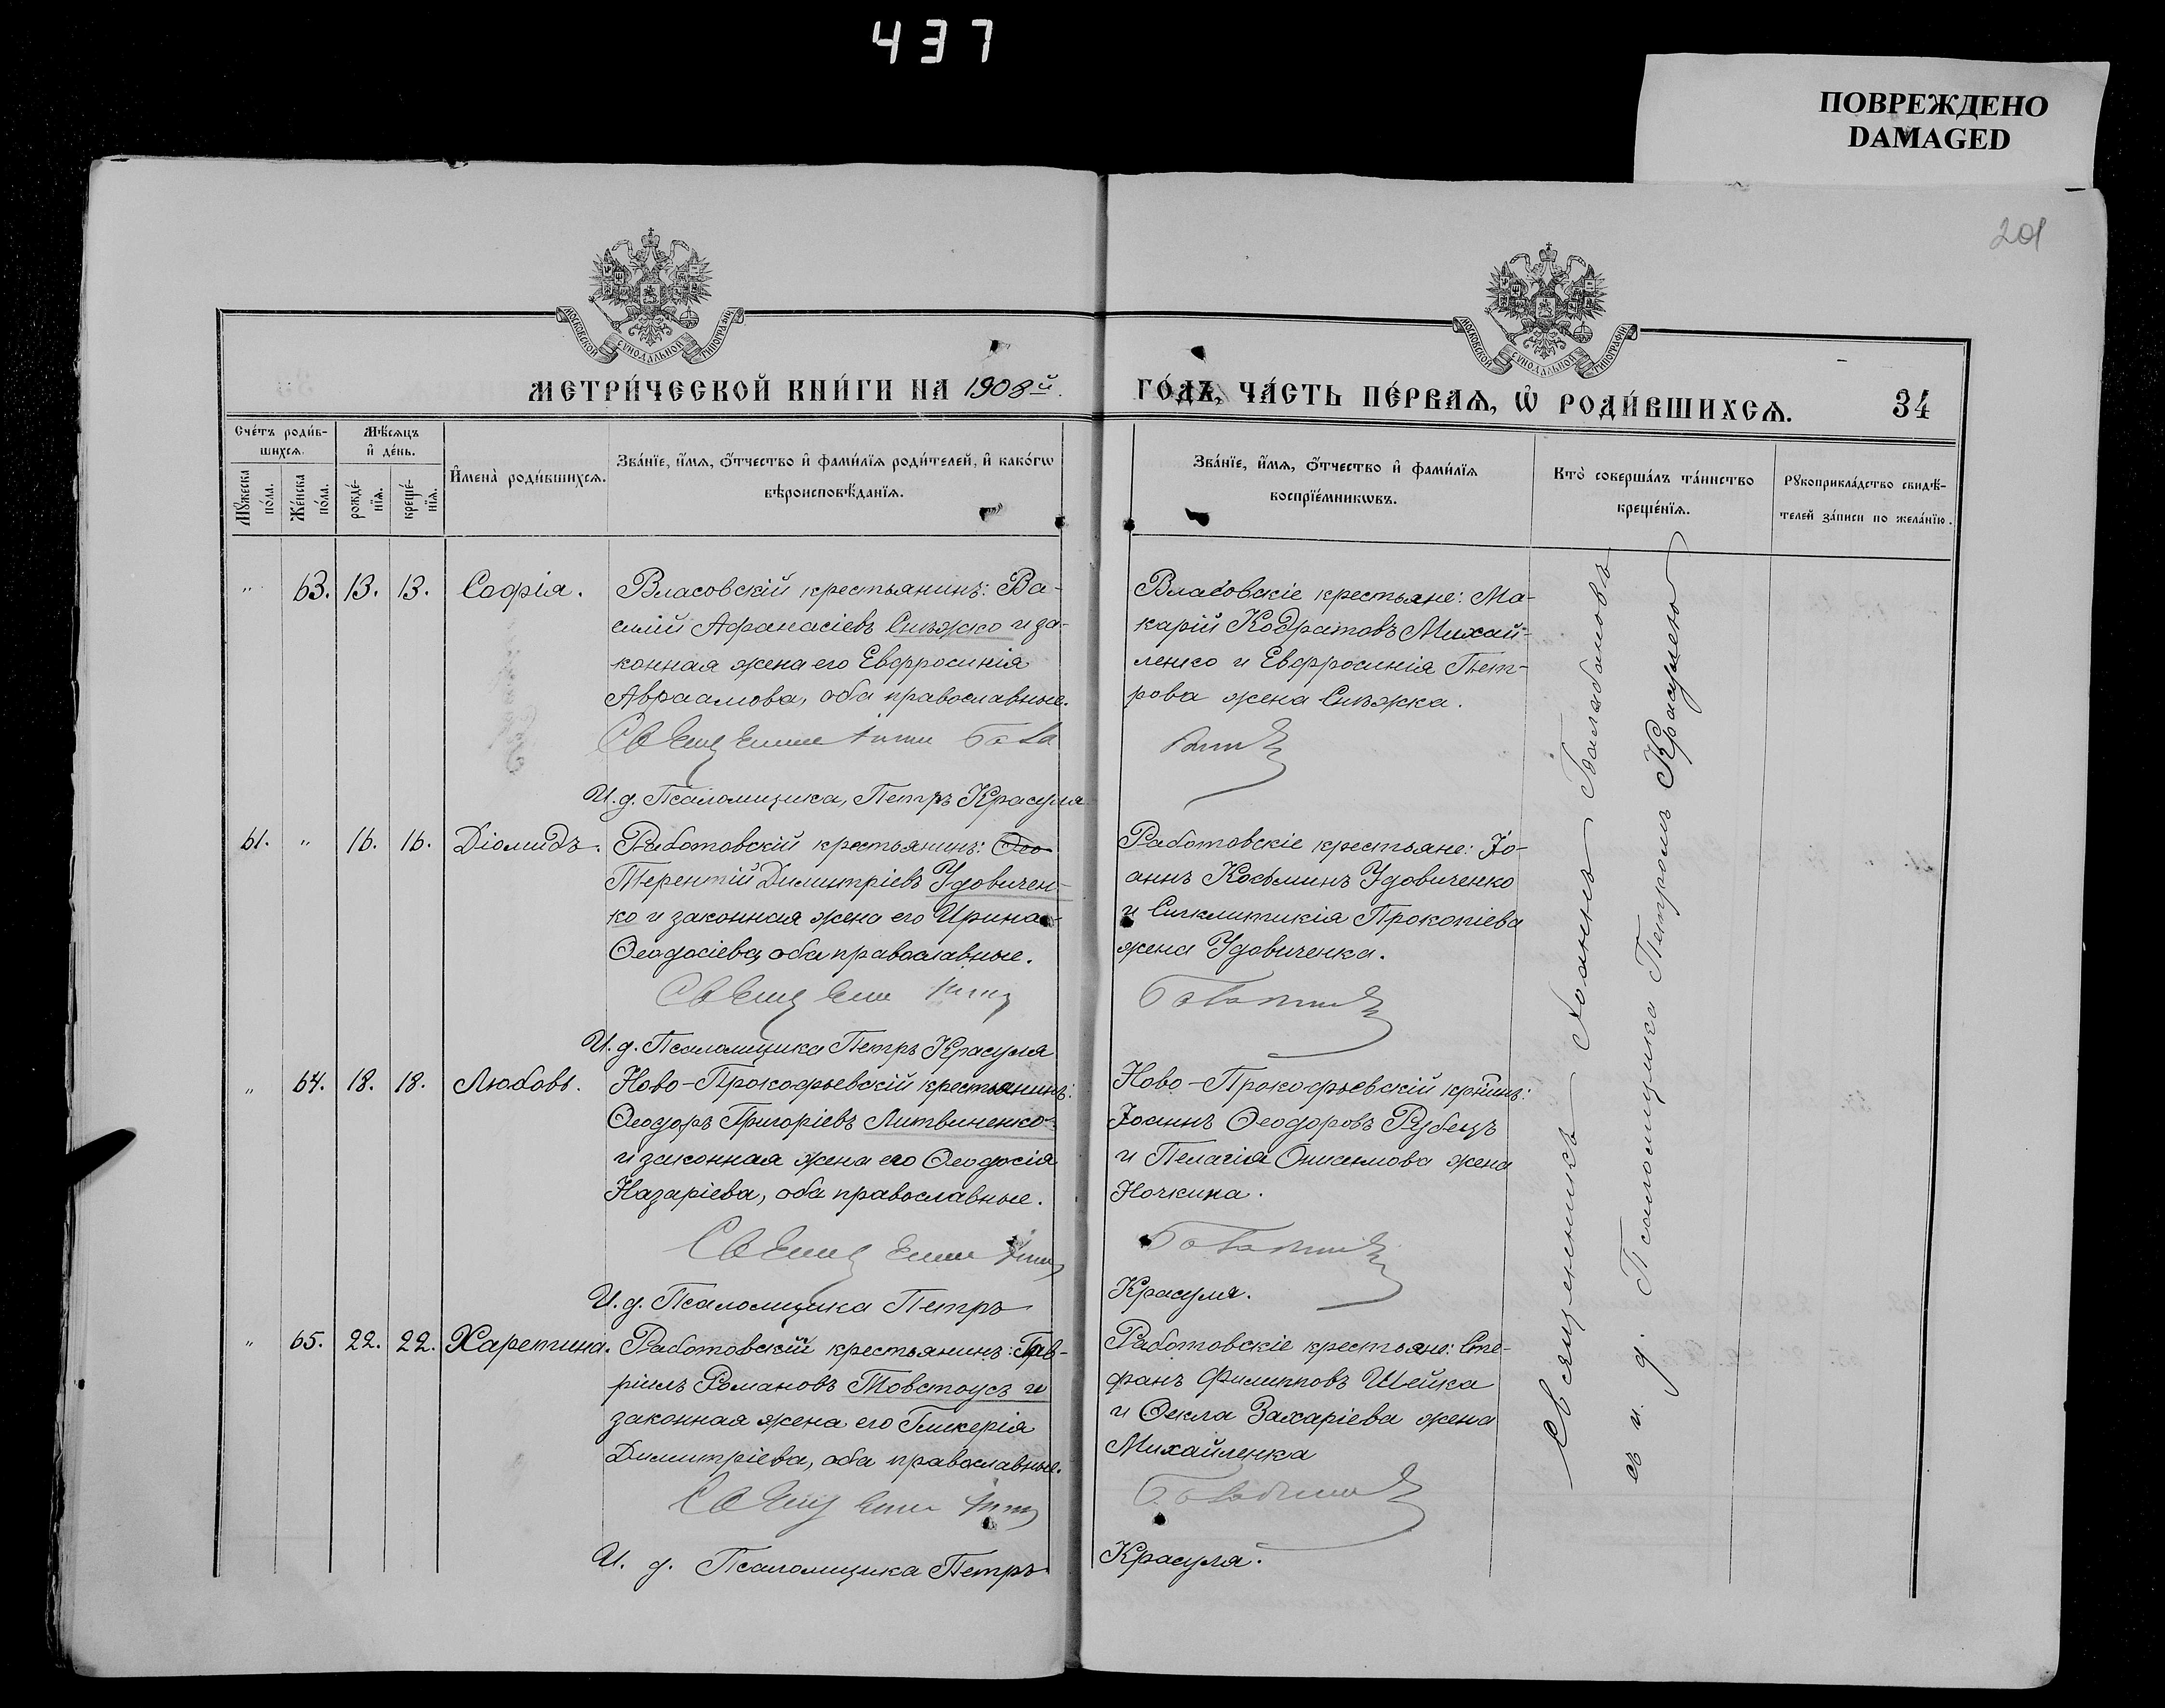 437
ПОВРЕЖДЕНО
DAMAGED
201
МОСКОВСКОЙ СѴНОДАЛЬНОЙ ТИПОГРАФІИ
МОСКОВСКОЙ СѴНОДАЛЬНОЙ ТИПОГРАФІИ
МЕТРИ́ЧЕСКОЙ КНИ́ГИ НА 1908й
ГО́ДЪ, ЧА́СТЬ ПЕ́РВАѦ, Ѡ҆ РОДИ́ВШИХСѦ. 34
Сче́тъ роди́в-
шихсѧ.
Мꙋ́жеска по́ла.
Же́нска по́ла.
Мѣ́сѧцъ
и҆ де́нь.
рожде́-
нїѧ.
креще́-
нїѧ.
И҆мена̀ роди́вшихсѧ.
Зва́нїе, и҆́мѧ, ѻ҆́тчество и҆ фами́лїѧ роди́телей, и҆ како́гѡ
вѣроисповѣ́данїѧ.
Зва́нїе, и҆́мѧ, ѻ҆́тчество и҆ фами́лїѧ
воспрїе́мникѡвъ.
Кто̀ соверша́лъ та́инство
креще́нїѧ.
Рꙋкоприкла́дство свидѣ́-
телей за́писи по жела́нїю.
" 63. 13. 13. Софія.
Власовскій крестьянинъ: Ва-
силій Афанасіевъ Снѣжко и за-
конная жена его Евфросинія
Авраамова, оба православные.
Власовскіе крестьяне: Ма-
карій Кодратовъ Михай-
ленко и Евфросинія Пет-
рова жена Снѣжка.
И. д. Псаломщика, Петръ Красуля
61. " 16. 16. Діомидъ.
Работовскій крестьянинъ: Ѳео
Терентій Димитріевъ Удовичен-
ко и законная жена его Ирина
Ѳеодосіева, оба православные.
Работовскіе крестьяне: Іо-
аннъ Косьминъ Удовиченко
и Сигклитикія Прокопіева
жена Удовиченка.
И. д. Псаломщика Петръ Красуля
" 64. 18. 18. Любовь.
Ново-Прокофьевскій крестьянинъ:
Ѳеодоръ Григоріевъ Литвиненко
и законная жена его Ѳеодосія
Назаріева, оба православные.
Ново-Прокофьевскій кр-нинъ:
Іоаннъ Ѳеодоровъ Рубецъ
и Пелагія Онисимова жена
Ночкина.
И. д. Псаломщика Петръ
Красуля.
" 65. 22. 22. Харетина.
Работовскій крестьянинъ: Гав-
ріилъ Романовъ Товстоусъ и
законная жена его Гликерія
Димитріева, оба православные.
Работовскіе крестьяне: Сте-
фанъ Филипповъ Шейка
и Ѳекла Захаріева жена
Михайленка
И. д. Псаломщика Петръ
Красуля.
Священникъ Іоаннъ Балабановъ
съ и. д. Псаломщика Петромъ Красулею